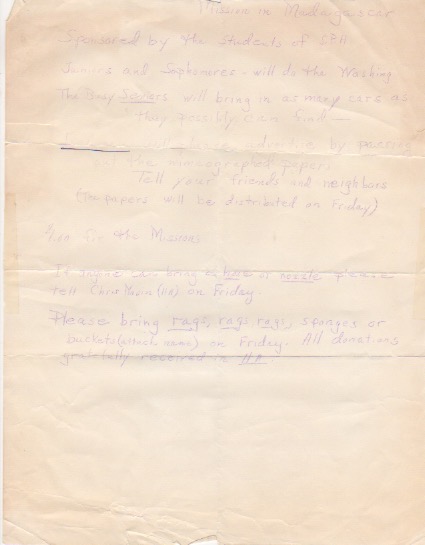 Mission in Madagascar
Sponsored by the students of
Juniors and Sophomores - will do the Washing
The Busy Seniors will bring in as many cars as
they possibly can find —
advertise by passing
out the mimeographed papers.
Tell your friends and neighbors
(The papers will be distributed on Friday)
$1.00 for the Missions
If anyone can bring a hose or nozzle please
tell Chris (11A) on Friday.
Please bring rags, rags, rags, sponges or
buckets (attach name) on Friday. All donations
gratefully received in 11A.